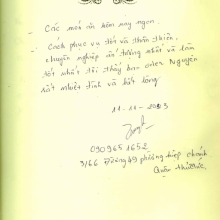 - Các món ăn hôm nay ngon.
- Cách phục vụ tốt và thân thiện,
chuyên nghiệp ấn tượng nhất và làm
tốt nhất tôi thấy bạn Nguyên
rất nhiệt tình và hài lòng
11-11-2013
090965 1652
3/66 Đường 49 phường hiệp chánh
Quận thủ đức